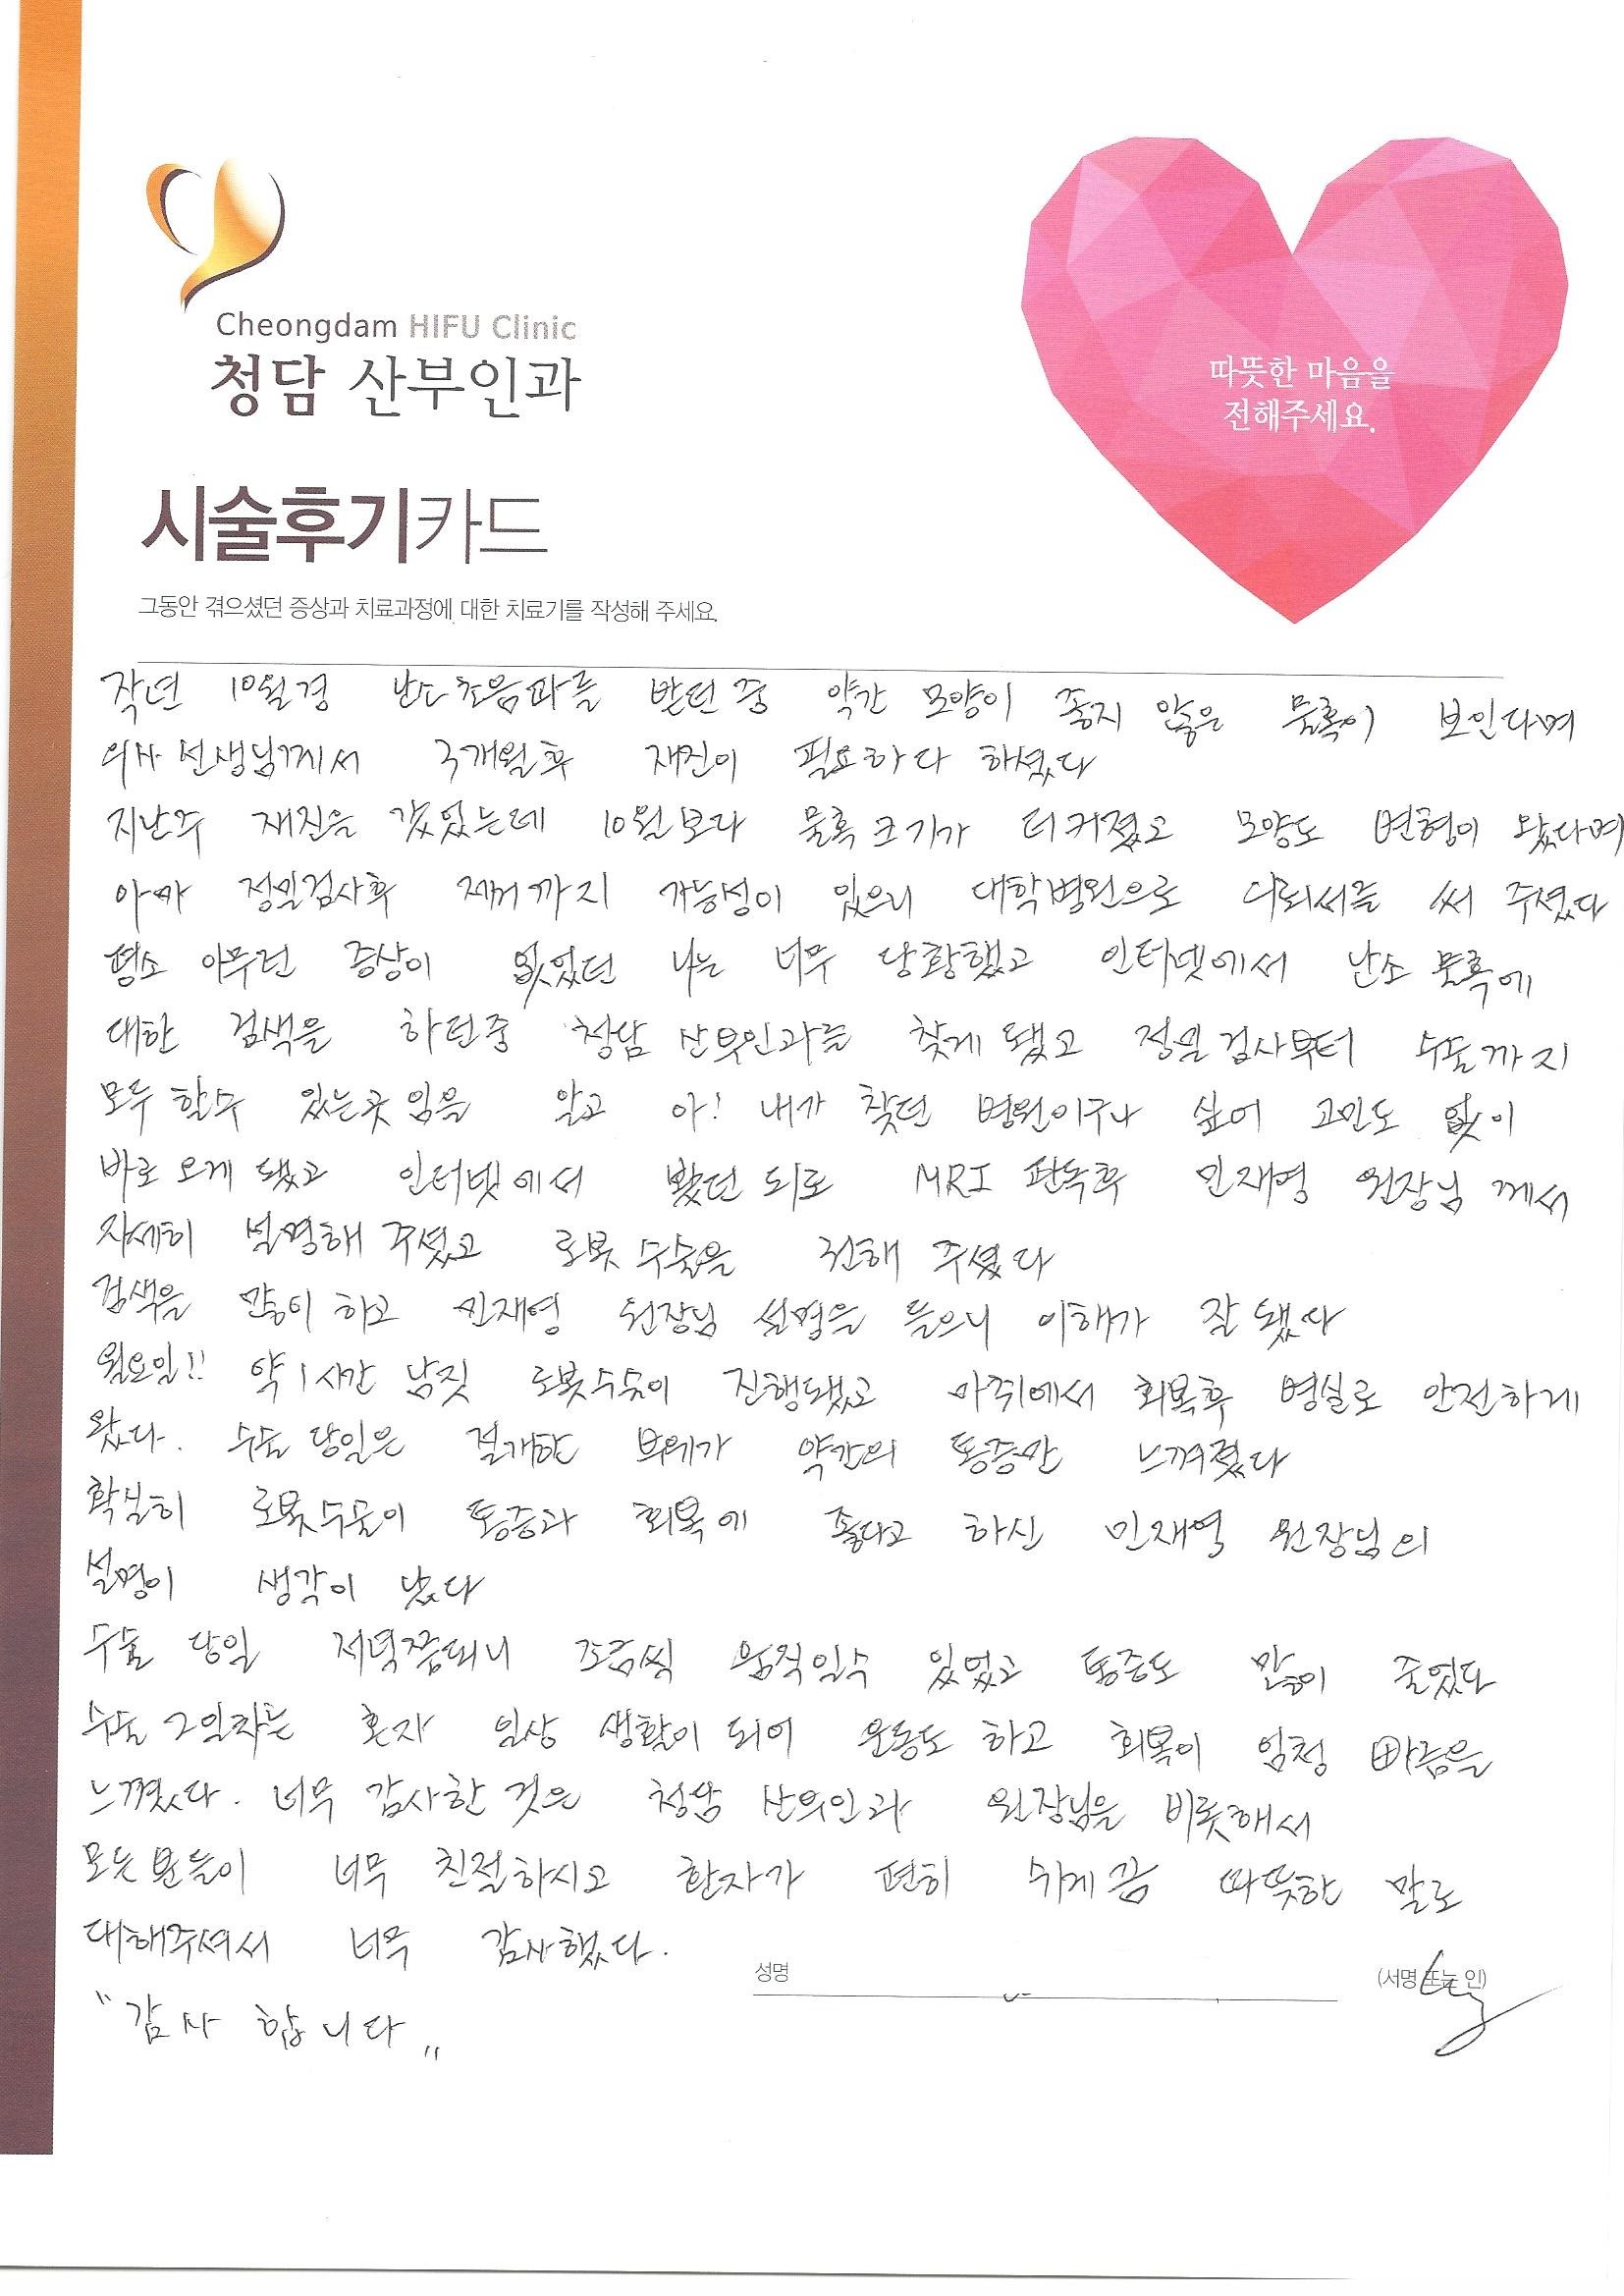 Cheongdam HIFU Clinic
청담 산부인과
따뜻한 마음을
전해주세요.
시술후기카드
그동안 겪으셨던 증상과 치료과정에 대한 치료기를 작성해 주세요.
작년 10월경 난소초음파를 받던중 약간 모양이 좋지 않은 물혹이 보인다며
의사 선생님께서 3개월후 재진이 필요하다 하셨다
지난주 재진을 갔었는데 10월보다 물혹크기가 더커졌고 모양도 변형이 왔다며
아마 정밀검사후 제거까지 가능성이 있으니 대학병원으로 의뢰서를 써 주셨다
평소 아무런 증상이 없었던 나는 너무 당황했고 인터넷에서 난소 물혹에
대한 검색을 하던중 청담 산부인과를 찾게 됐고 정밀검사부터 수술까지
모두 할수 있는곳임을 알고 아! 내가 찾던 병원이구나 싶어 고민도 없이
바로 오게 됐고 인터넷에서 봤던 되로 MRI 판독후 민재영 원장님 께서
자세히 설명해 주셨고 로봇 수술을 권해 주셨다
검색을 많이 하고 민재영 원장님 설명을 들으니 이해가 잘 됐다
월요일!! 약 1시간 남짓 로봇수술이 진행됐고 마취에서 회복후 병실로 안전하게
왔다. 수술 당일은 절개한 부위가 약간의 통증만 느껴졌다
확실히 로봇수술이 통증과 회복에 좋다고 하신 민재영 원장님의
설명이 생각이 났다
수술 당일 저녁쯤되니 조금씩 움직일수 있었고 통증도 많이 줄었다
수술 2일차는 혼자 일상 생활이 되어 운동도 하고 회복이 엄청 빠름을
느꼈다. 너무 감사한 것은 청담 산부인과 원장님을 비롯해서
모든분들이 너무 친절하시고 환자가 편히 쉬게끔 따뜻한 말로
대해주셔서 너무 감사했다.
성명 (서명 또는 인)
"감사 합니다"